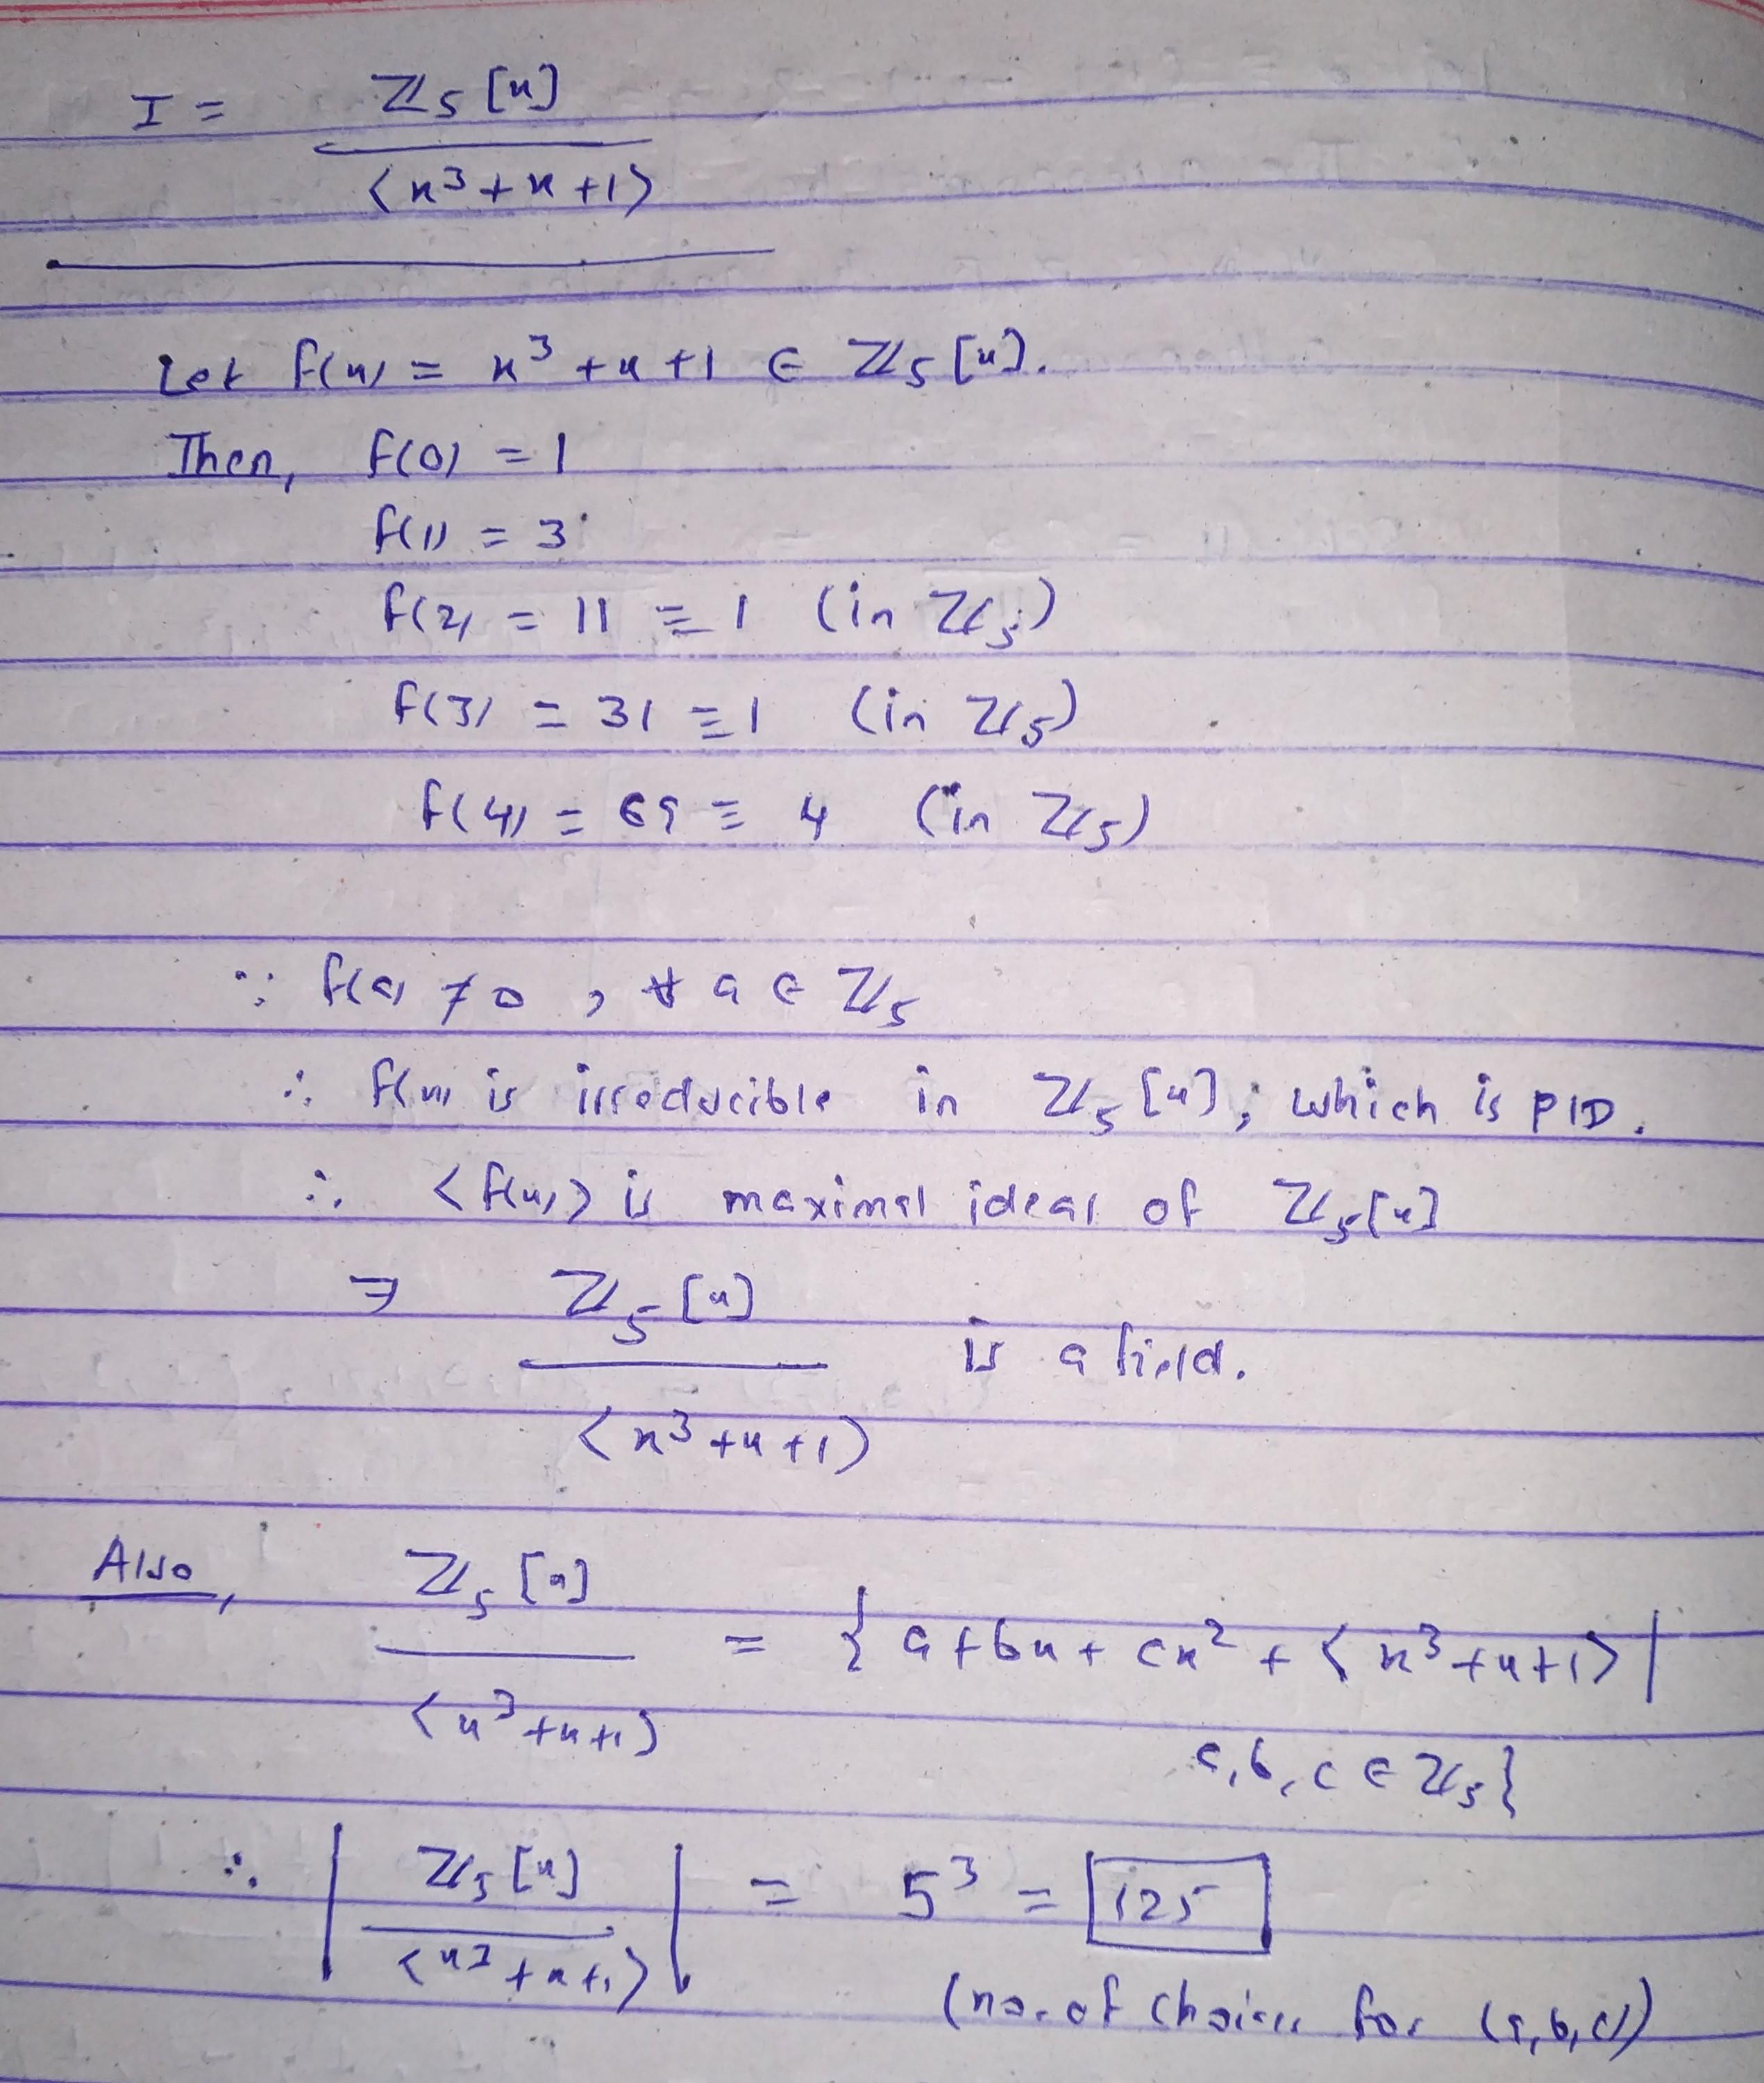 I = ℤ₅[x]
<x³+x+1>
Let f(x) = x³+x+1 ∈ ℤ₅[x].
Then, f(0) = 1
f(1) = 3
f(2) = 11 ≡ 1 (in ℤ₅)
f(3) = 31 ≡ 1 (in ℤ₅)
f(4) = 69 ≡ 4 (in ℤ₅)
∵ f(a) ≠ 0, ∀ a ∈ ℤ₅
∴ f(x) is irreducible in ℤ₅[x], which is PID.
∴ <f(x)> is maximal ideal of ℤ₅[x]
⇒ ℤ₅[x]
is a field.
<x³+x+1>
Also, ℤ₅[x]
= { a+bx+cx² + <x³+x+1> |
<x³+x+1>
a,b,c ∈ ℤ₅}
∴ | ℤ₅[x] | = 5³ = 125
<x³+x+1>
(no. of choices for (a,b,c))